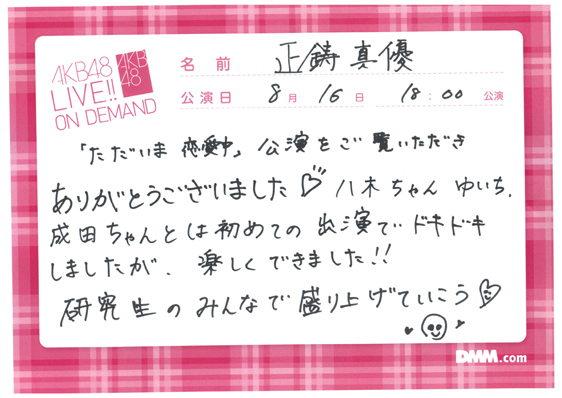 AKB48
LIVE!!
ON DEMAND
AKB
48
名前 正鋳真優
公演日 8月 16日 18:00 公演
「ただいま 恋愛中」公演をご覧いただき
ありがとうございました♡ 八木ちゃん ゆいち、
成田ちゃんとは初めての出演でドキドキ
しましたが、楽しくできました!!
研究生のみんなで盛り上げていこう♡
DMM.com